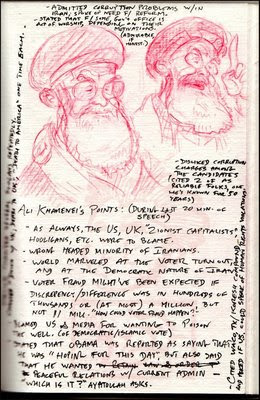 - "ADMITTED CORRUPTION PROBLEMS W/IN
IRAN, SPOKE OF NEED F/ REFORM.
- STATED THAT F/ SOME, GOV'T OFFICE IS
ACT OF WORSHIP, DEPENDING ON THEIR
MOTIVATIONS.
(ADMIRABLE
IF
HONEST.)
"DEATH TO AMERICA" ONE TIME EACH.
- DISMISSED CORRUPTION
CHARGES AMONG
THE CANDIDATES
(CITED 2 OF AS
RELIABLE FOLKS, ONE
HE'S KNOWN FOR 50
YEARS)
ALI KHAMENEI'S POINTS: (DURING LAST 20 MIN. OF
SPEECH)
- AS ALWAYS, THE US, UK, "ZIONIST CAPITALISTS"
HOOLIGANS, ETC. WERE TO BLAME.
- WRONG HEADED MINORITY OF IRANIANS.
- WORLD MARVELED AT THE VOTER TURN OUT
AND AT THE DEMOCRATIC NATURE OF IRAN
- VOTER FRAUD MIGHT'VE BEEN EXPECTED IF
DISCREPENCY/DIFFERENCE WAS IN HUNDREDS OF
THOUSANDS OR (AT MOST) A MILLION, BUT
NOT 11 MILL. "HOW COULD VOTER FRAUD HAPPEN?"
BLAMED US & MEDIA FOR WANTING TO POISON
THE WELL. (OF DEMOCRATIC/ISLAMIC VOTE)
STATED THAT OBAMA WAS REPORTED AS SAYING THAT
HE WAS "HOPING FOR THIS DAY" BUT ALSO SAID
THAT HE WANTED
PEACEFUL RELATIONS W/ CURRENT ADMIN -
WHICH IS IT? AYATOLLAH ASKS.
- CITED WACO, TX/KORESH COMPOUND
HUMAN RIGHTS VIOLATIONS